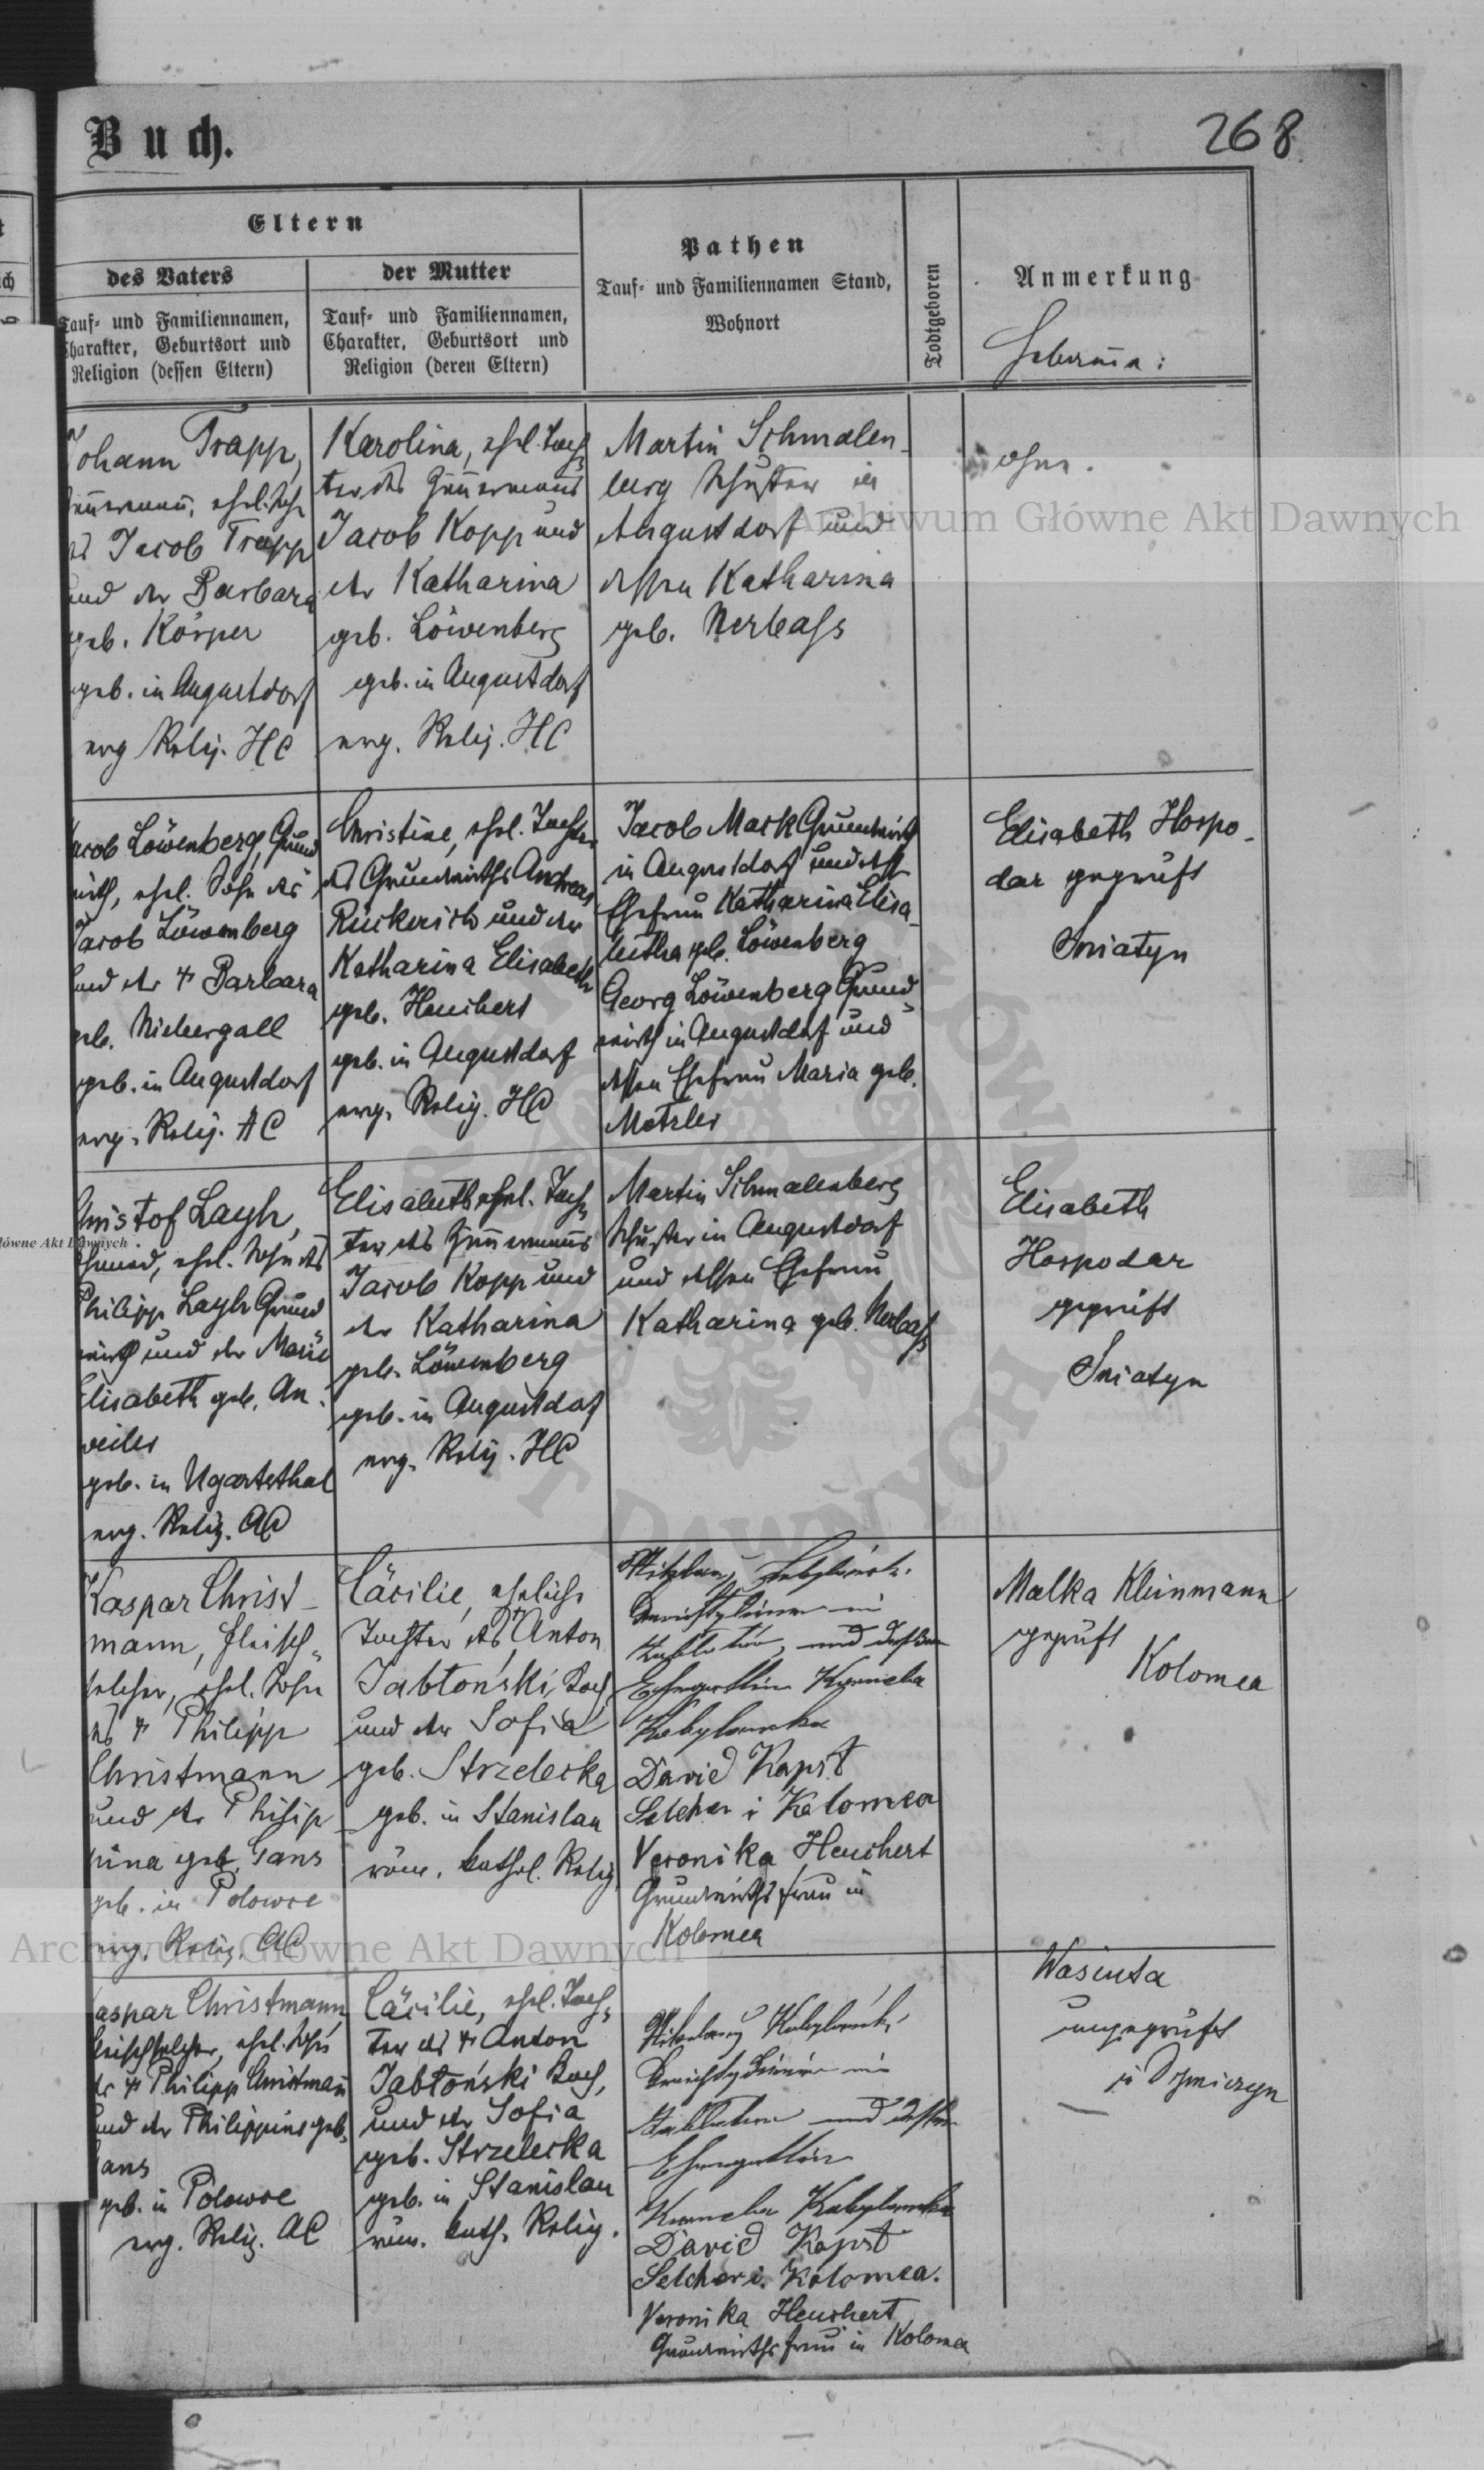 Buch.
268
Eltern
des Vaters
Tauf= und Familiennamen,
Charakter, Geburtsort und
Religion (dessen Eltern)
der Mutter
Tauf= und Familiennamen,
Charakter, Geburtsort und
Religion (deren Eltern)
Pathen
Tauf= und Familiennamen Stand,
Wohnort
Todtgeboren
Anmerkung
Hebamme:
Johann Trapp,
Zimmermann, ehel. Sohn
des Jacob Trapp
und der Barbara
geb. Körper
geb. in Augustdorf
evg Relig. HC
Karolina, ehel. Toch=
ter des Zimmermanns
Jacob Kopp und
der Katharina
geb. Löwenberg
geb. in Augustdorf
evg. Relig. HC
Martin Schmalen-
berg Schuster in
Augustdorf und
dessen Katharina
geb. Nerbass
ohne.
Jacob Löwenberg, Grund
wirth, ehel. Sohn des
Jacob Löwenberg
und der + Barbara
geb. Niebergall
geb. in Augustdorf
evg. Relig. HC
Christine, ehel. Tochter
des Grundwirths Andreas
Rückerich und der
Katharina Elisabeth
geb. Heuchert
geb. in Augustdorf
evg. Relig. HC
Jacob Mack Grundwirth
in Augustdorf und dess
Ehefrau Katharina Elisa-
betha geb. Löwenberg
Georg Löwenberg Grund=
wirth in Augustdorf und
dessen Ehefrau Maria geb.
Metzler
Elisabeth Hospo-
dar geprüft
Sniatyn
Christof Layh,
Schmied, ehel. Sohn des
Philipp Layh Grund
wirth und der Marie
Elisabeth geb. An-
weiler
geb. in Ugartsthal
evg. Relig. AC
Elisabeth ehel. Toch=
ter des Zimmermanns
Jacob Kopp und
der Katharina
geb. Löwenberg
geb. in Augustdorf
evg. Relig. HC
Martin Schmalenberg
Schuster in Augustdorf
und dessen Ehefrau
Katharina geb. Nerbass
Elisabeth
Hospodar
geprüft
Sniatyn
Kaspar Christ-
mann, Fleisch=
selcher, ehel. Sohn
des + Philipp
Christmann
und der Philip
pina geb. Gans
geb. in Polowce
evg. Relig. AC
Cäcilie, eheliche
Tochter des + Anton
Jabłoński, Koch
und der Sofia
geb. Strzelecka
geb. in Stanislau
röm. kathol. Relig.
Gerichtsdiener in
und dessen
Ehegattin
David Kapst
Selcher i Kolomea
Veronika Heuchert
Grundwirths frau in
Kolomea
Malka Kleinmann
geprüft
Kolomea
Kaspar Christmann,
Fleischselcher, ehel. Sohn
des + Philipp Christmann
und der Philippine geb.
Gans
geb. in Polowce
evg. Relig. AC
Cäcilie, ehel. Toch=
ter des + Anton
Jabłoński Koch,
und der Sofia
geb. Strzelecka
geb. in Stanislau
röm. kath. Relig.
Gerichtsdiener in
und dessen
Ehegattin
David Kapst
Selcher i. Kolomea.
Veronika Heuchert
Grundwirths frau in Kolomea
Wasiuta
ungeprüft
Archiwum Główne Akt Dawnych
Archiwum Główne Akt Dawnych